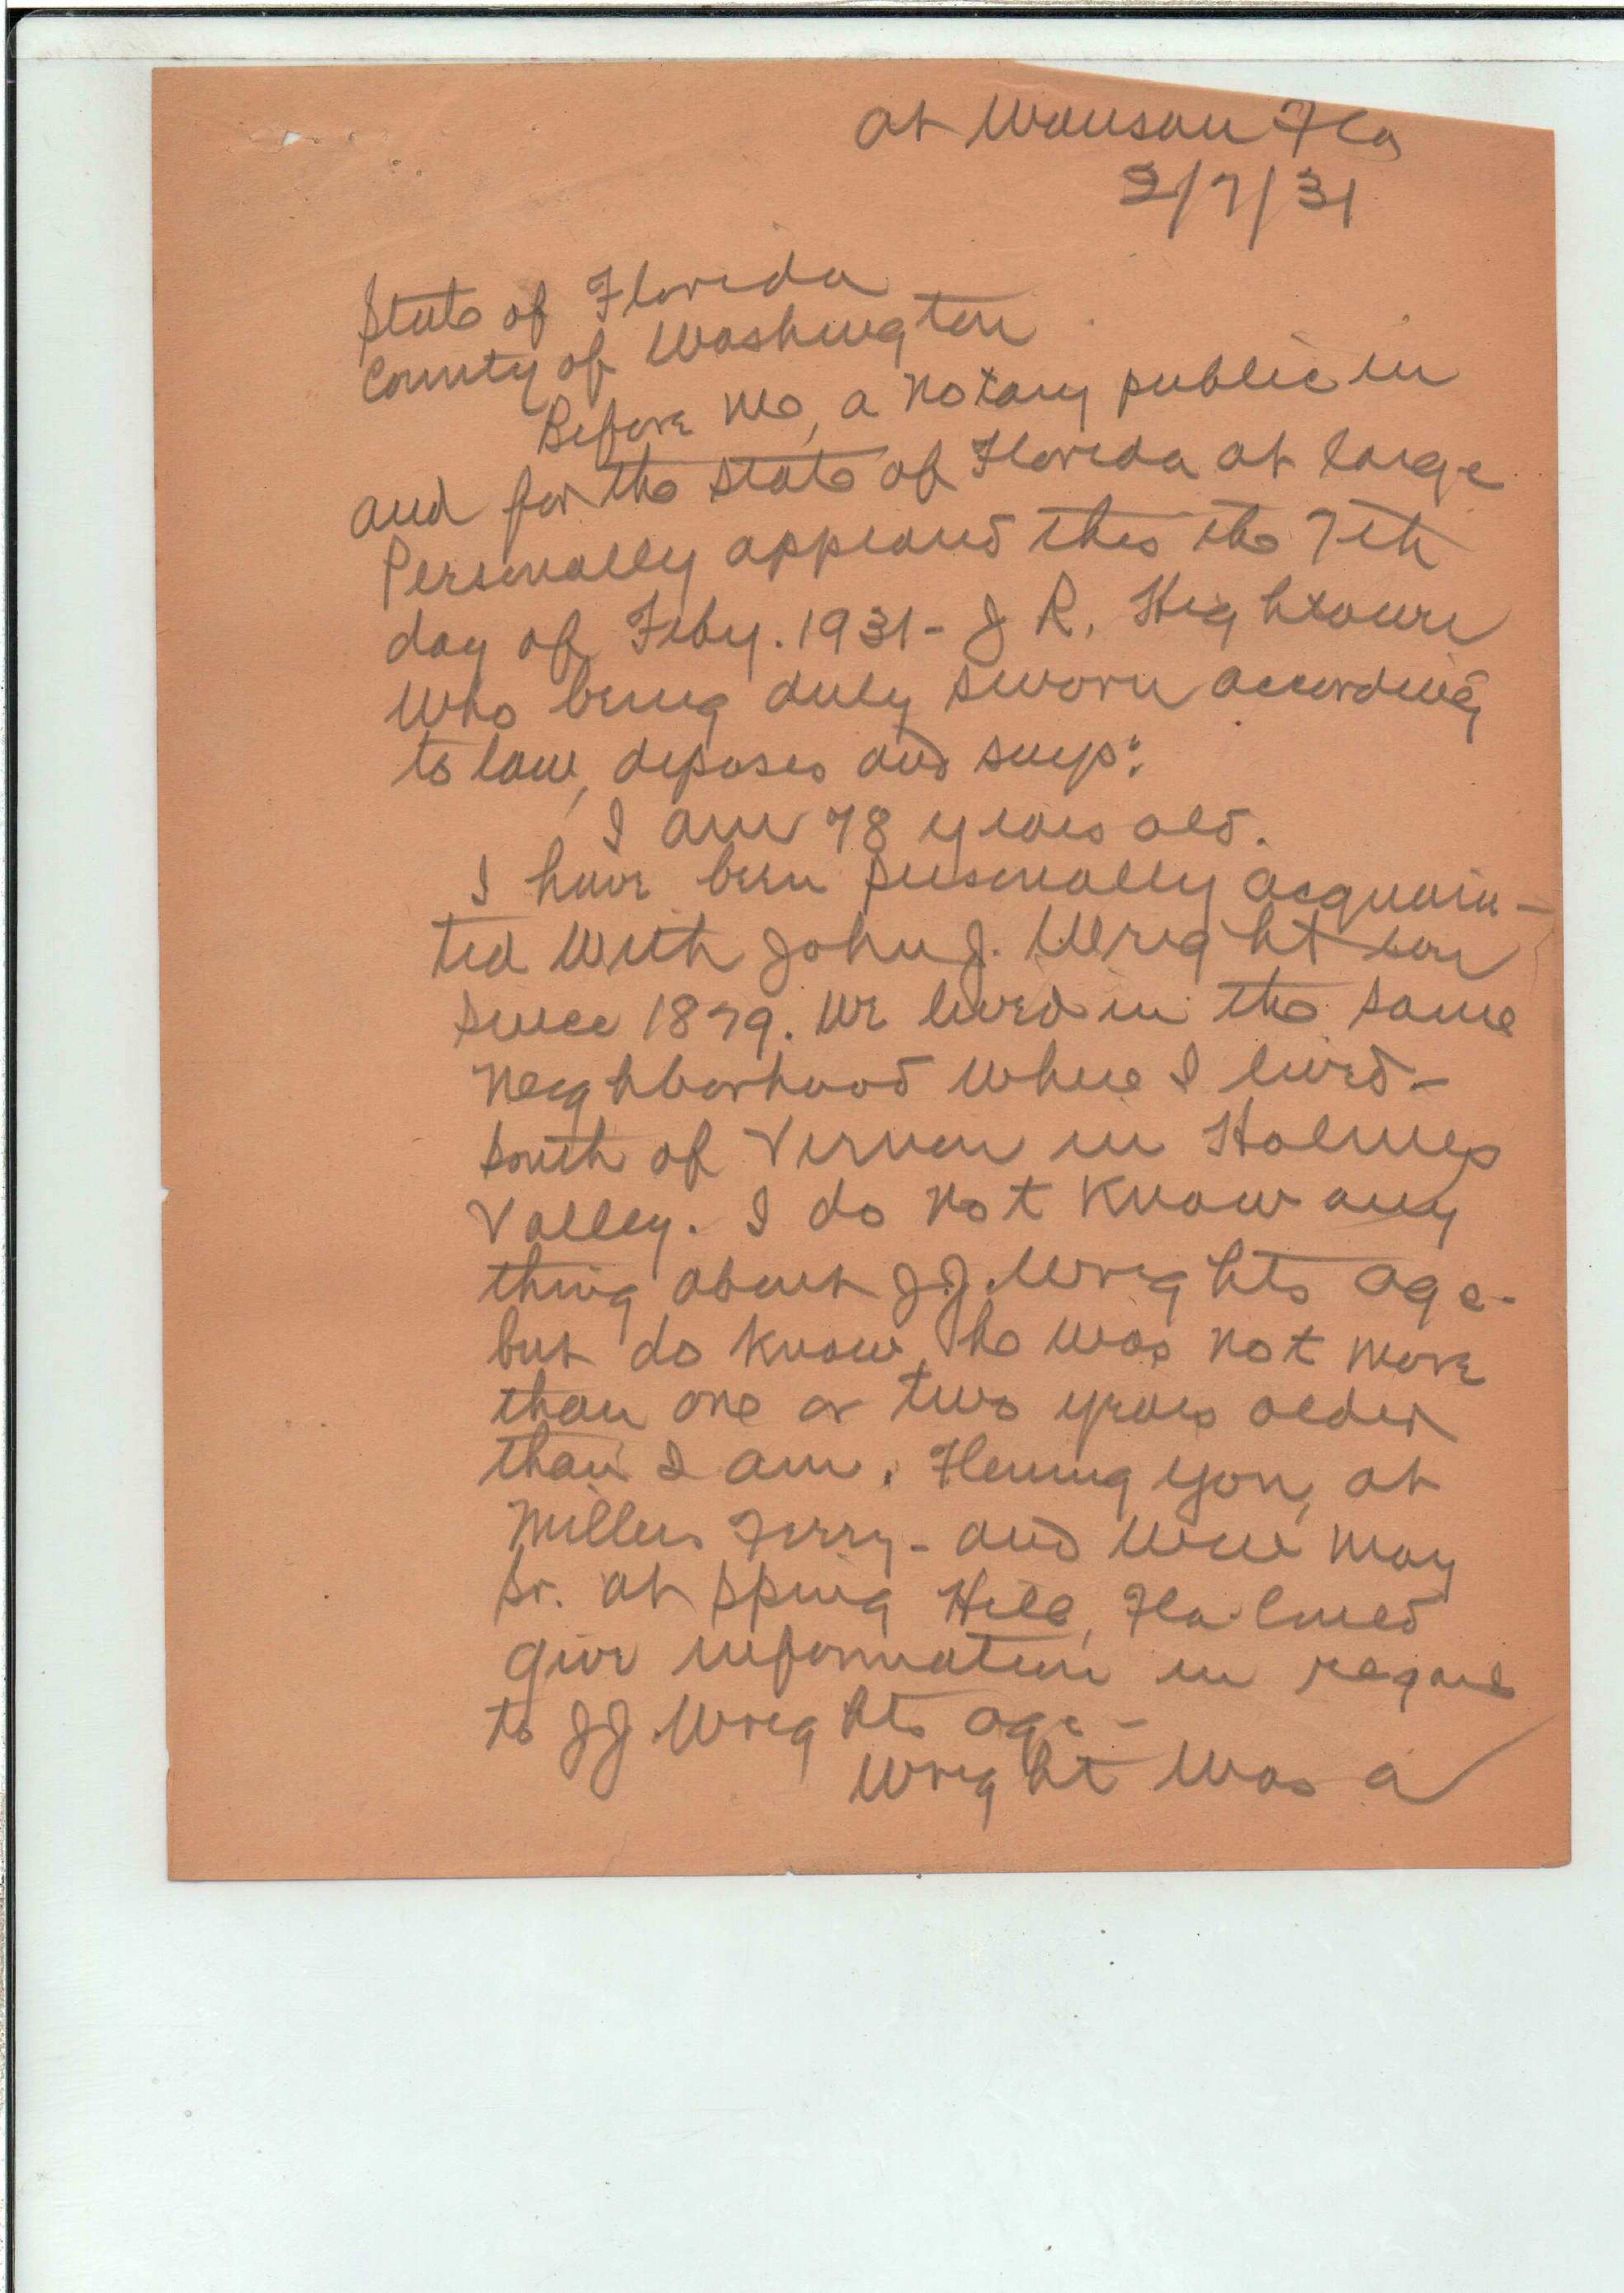 at Wausau Fla
2/7/31
State of Florida
County of Washington
Before me, a Notary public in
and for the State of Florida at large
Personally appeared this the 7th
day of Feby. 1931 - J R. Hightower
Who being duly sworn according
to law, deposes and says:
I am 78 years old.
I have been personally acquain-
ted with John J. Wright
since 1879. We lived in the same
Neighborhood where I lived -
South of Vernon in Holmes
Valley. I do not know any
thing about J.J. Wrights age -
but do know he was not more
than one or two years older
than I am. Fleming Yon, at
Millers Ferry - and Will May
Sr. at Spring Hill, Fla. could
give information in regard
to JJ. Wrights age -
Wright was a